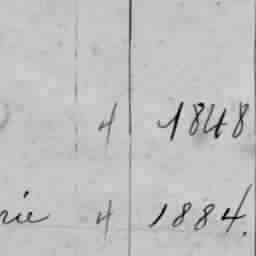 4 1848
rie 4 1884.